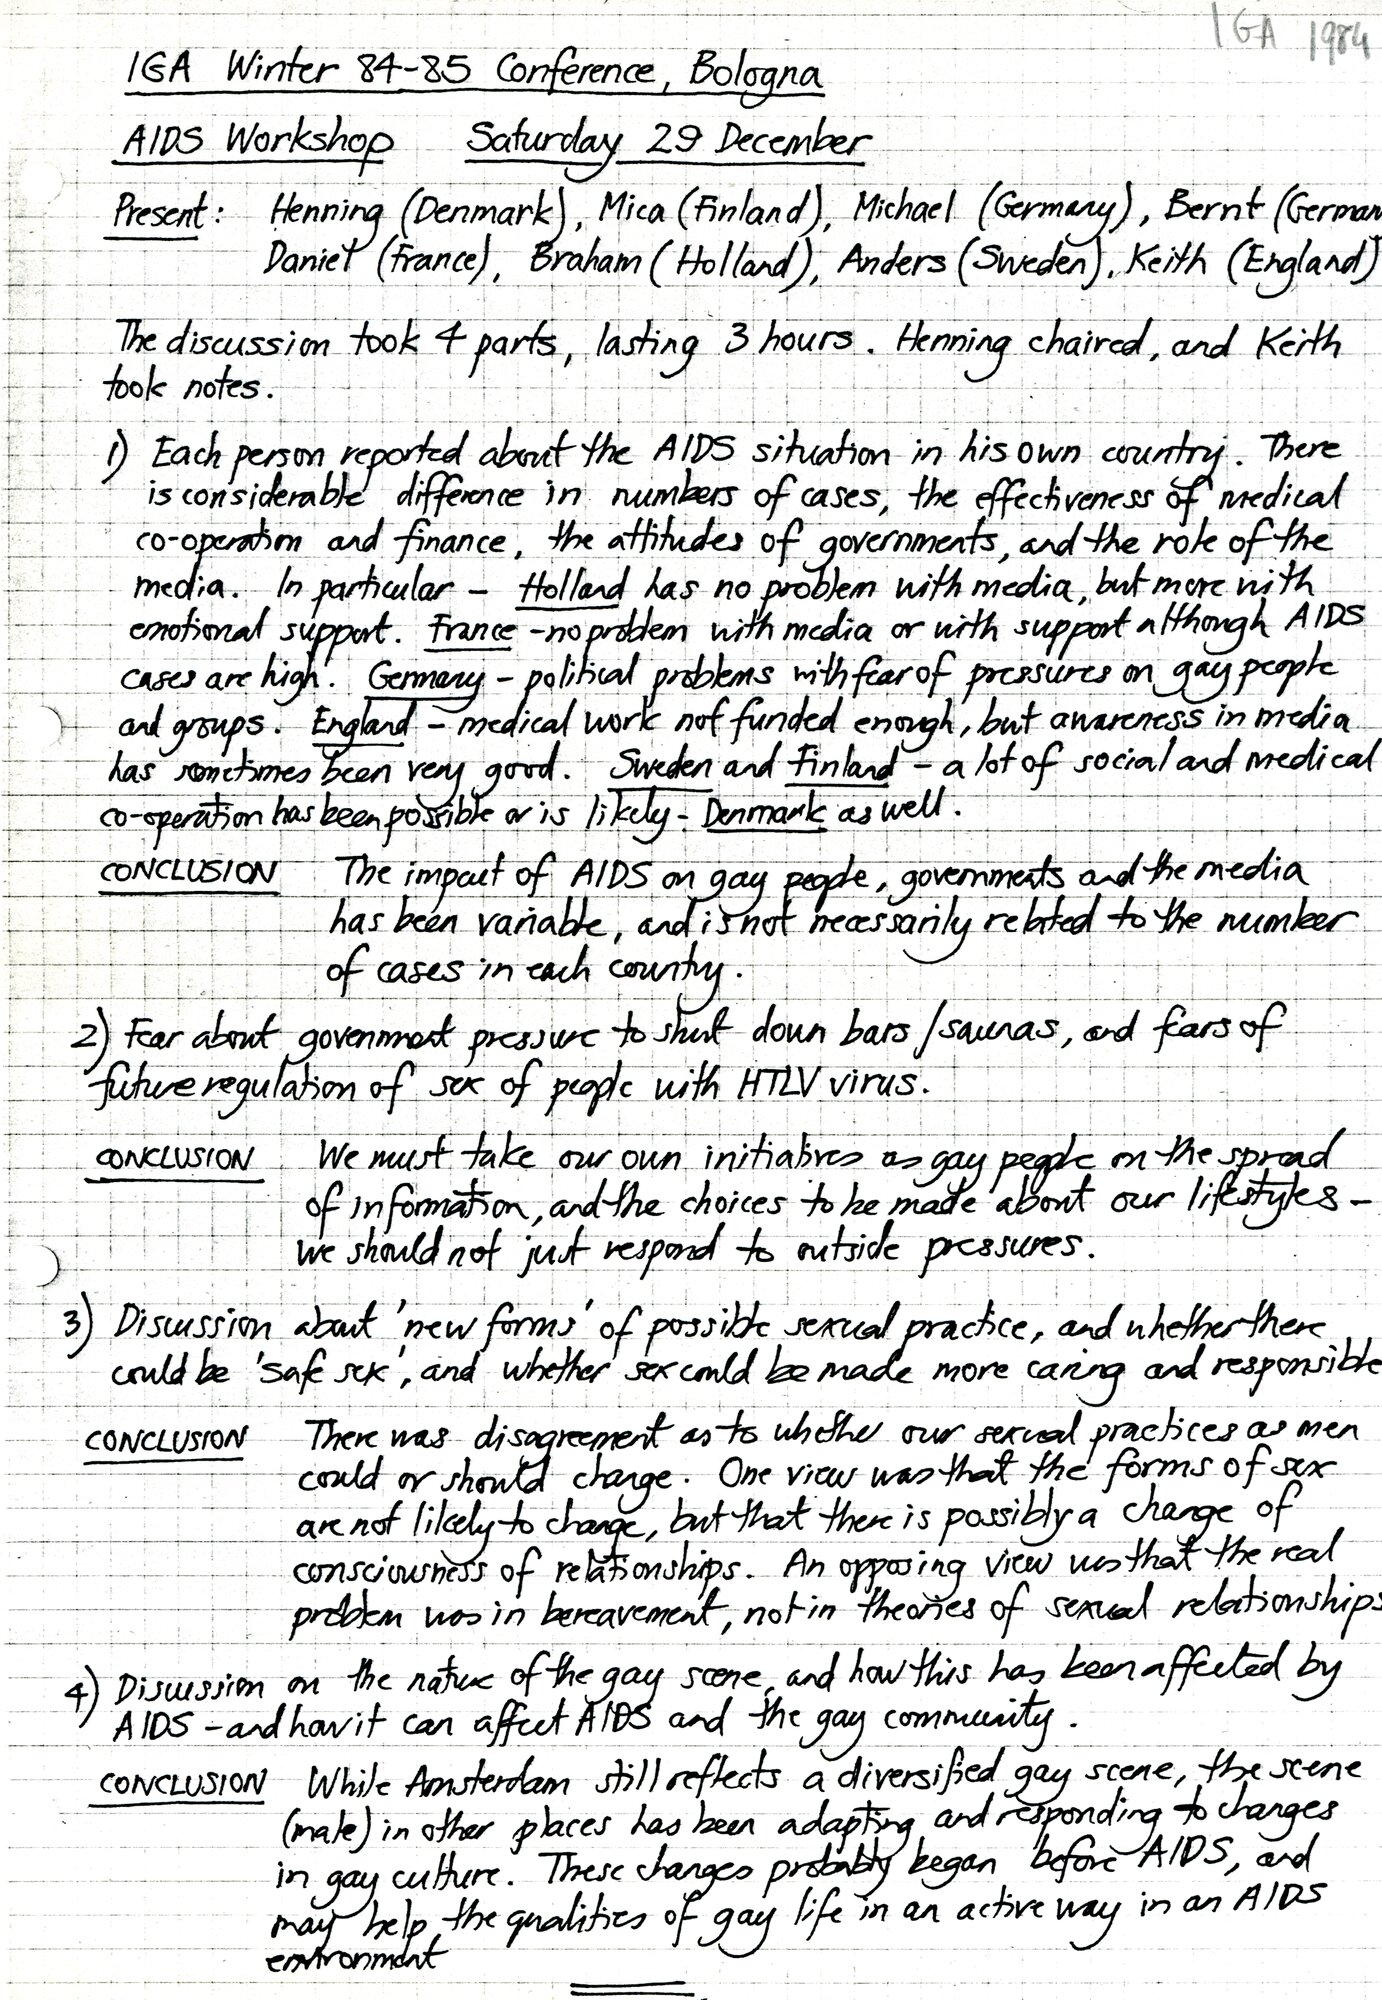 IGA 1984
IGA Winter 84-85 Conference, Bologna
AIDS Workshop Saturday 29 December
Present: Henning (Denmark), Mica (Finland), Michael (Germany), Bernt (German
Daniel (France), Braham (Holland), Anders (Sweden), Keith (England)
The discussion took 4 parts, lasting 3 hours. Henning chaired, and Keith
took notes.
1) Each person reported about the AIDS situation in his own country. There
is considerable difference in numbers of cases, the effectiveness of medical
co-operation and finance, the attitudes of governments, and the role of the
media. In particular - Holland has no problem with media, but more with
emotional support. France - no problem with media or with support although AIDS
cases are high. Germany - political problems with fear of pressures on gay people
and groups. England - medical work not funded enough, but awareness in media
has sometimes been very good. Sweden and Finland - a lot of social and medical
co-operation has been possible or is likely - Denmark as well.
CONCLUSION The impact of AIDS on gay people, governments and the media
has been variable, and is not necessarily related to the number
of cases in each country.
2) Fear about government pressure to shut down bars/saunas, and fears of
future regulation of sex of people with HTLV virus.
CONCLUSION We must take our own initiatives as gay people on the spread
of information, and the choices to be made about our lifestyles -
we should not just respond to outside pressures.
3) Discussion about 'new forms' of possible sexual practice, and whether there
could be 'safe sex', and whether sex could be made more caring and responsible
CONCLUSION There was disagreement as to whether our sexual practices as men
could or should change. One view was that the forms of sex
are not likely to change, but that there is possibly a change of
consciousness of relationships. An opposing view was that the real
problem was in bereavement, not in theories of sexual relationships
4) Discussion on the nature of the gay scene, and how this has been affected by
AIDS - and how it can affect AIDS and the gay community.
CONCLUSION While Amsterdam still reflects a diversified gay scene, the scene
(male) in other places has been adapting and responding to changes
in gay culture. These changes probably began before AIDS, and
may help the qualities of gay life in an active way in an AIDS
environment